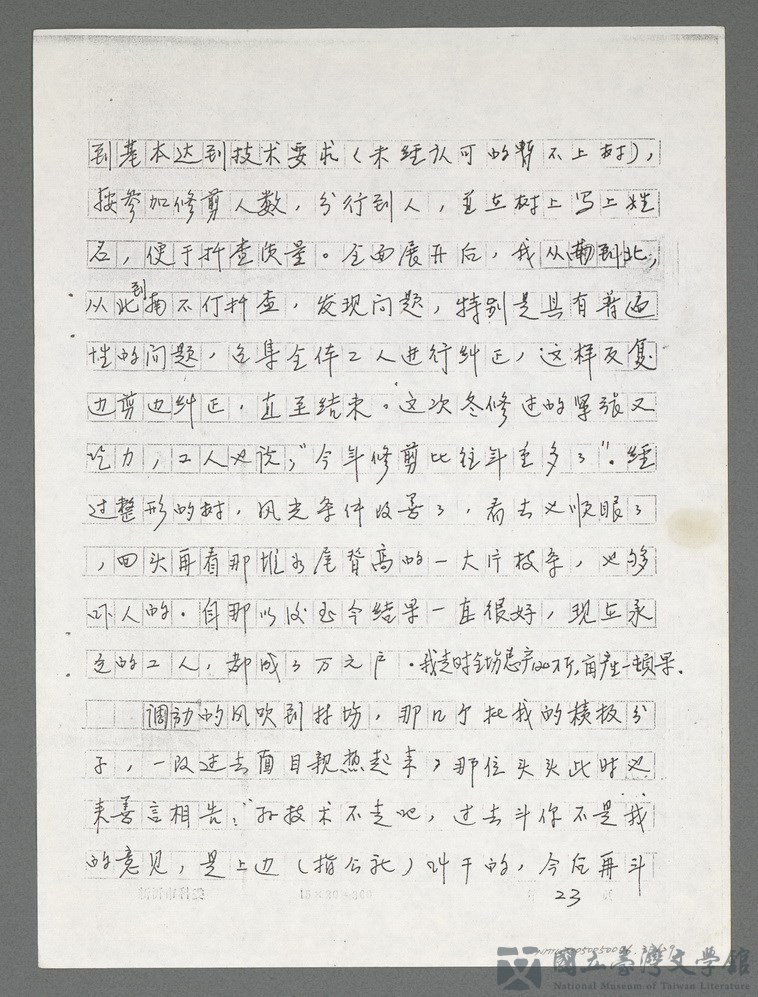 到基本达到技术要求（未经认可的暂不上树），
按参加修剪人数，分行到人，并在树上写上姓
名，便于抽查质量。全面展开后，我从南到北，
从北到南不停抽查，发现问题，特别是具有普遍
性的问题，召集全体工人进行纠正，这样反复
边剪边纠正，直至结束。这次冬修过的紧张又
吃力，工人也说："今年修剪比往年重多了"。经
过整形的树，风光条件改善了，看去也顺眼了
，回头再看那堆的尾脊高的一大片枝条，也够
吓人的。自那以后至今结果一直很好，现在承
包的工人，都成了万元户。我走时全场总产200万斤，亩产一顿果。
调动的风吹到林场，那几个批我的横板分
子，一改过去面目親热起来，那位头头此时也
来善言相告："孙技术不走吧，过去斗你不是我
的意见，是上边（指公社）叫干的，今后再斗
23
國立臺灣文學館
National Museum of Taiwan Literature